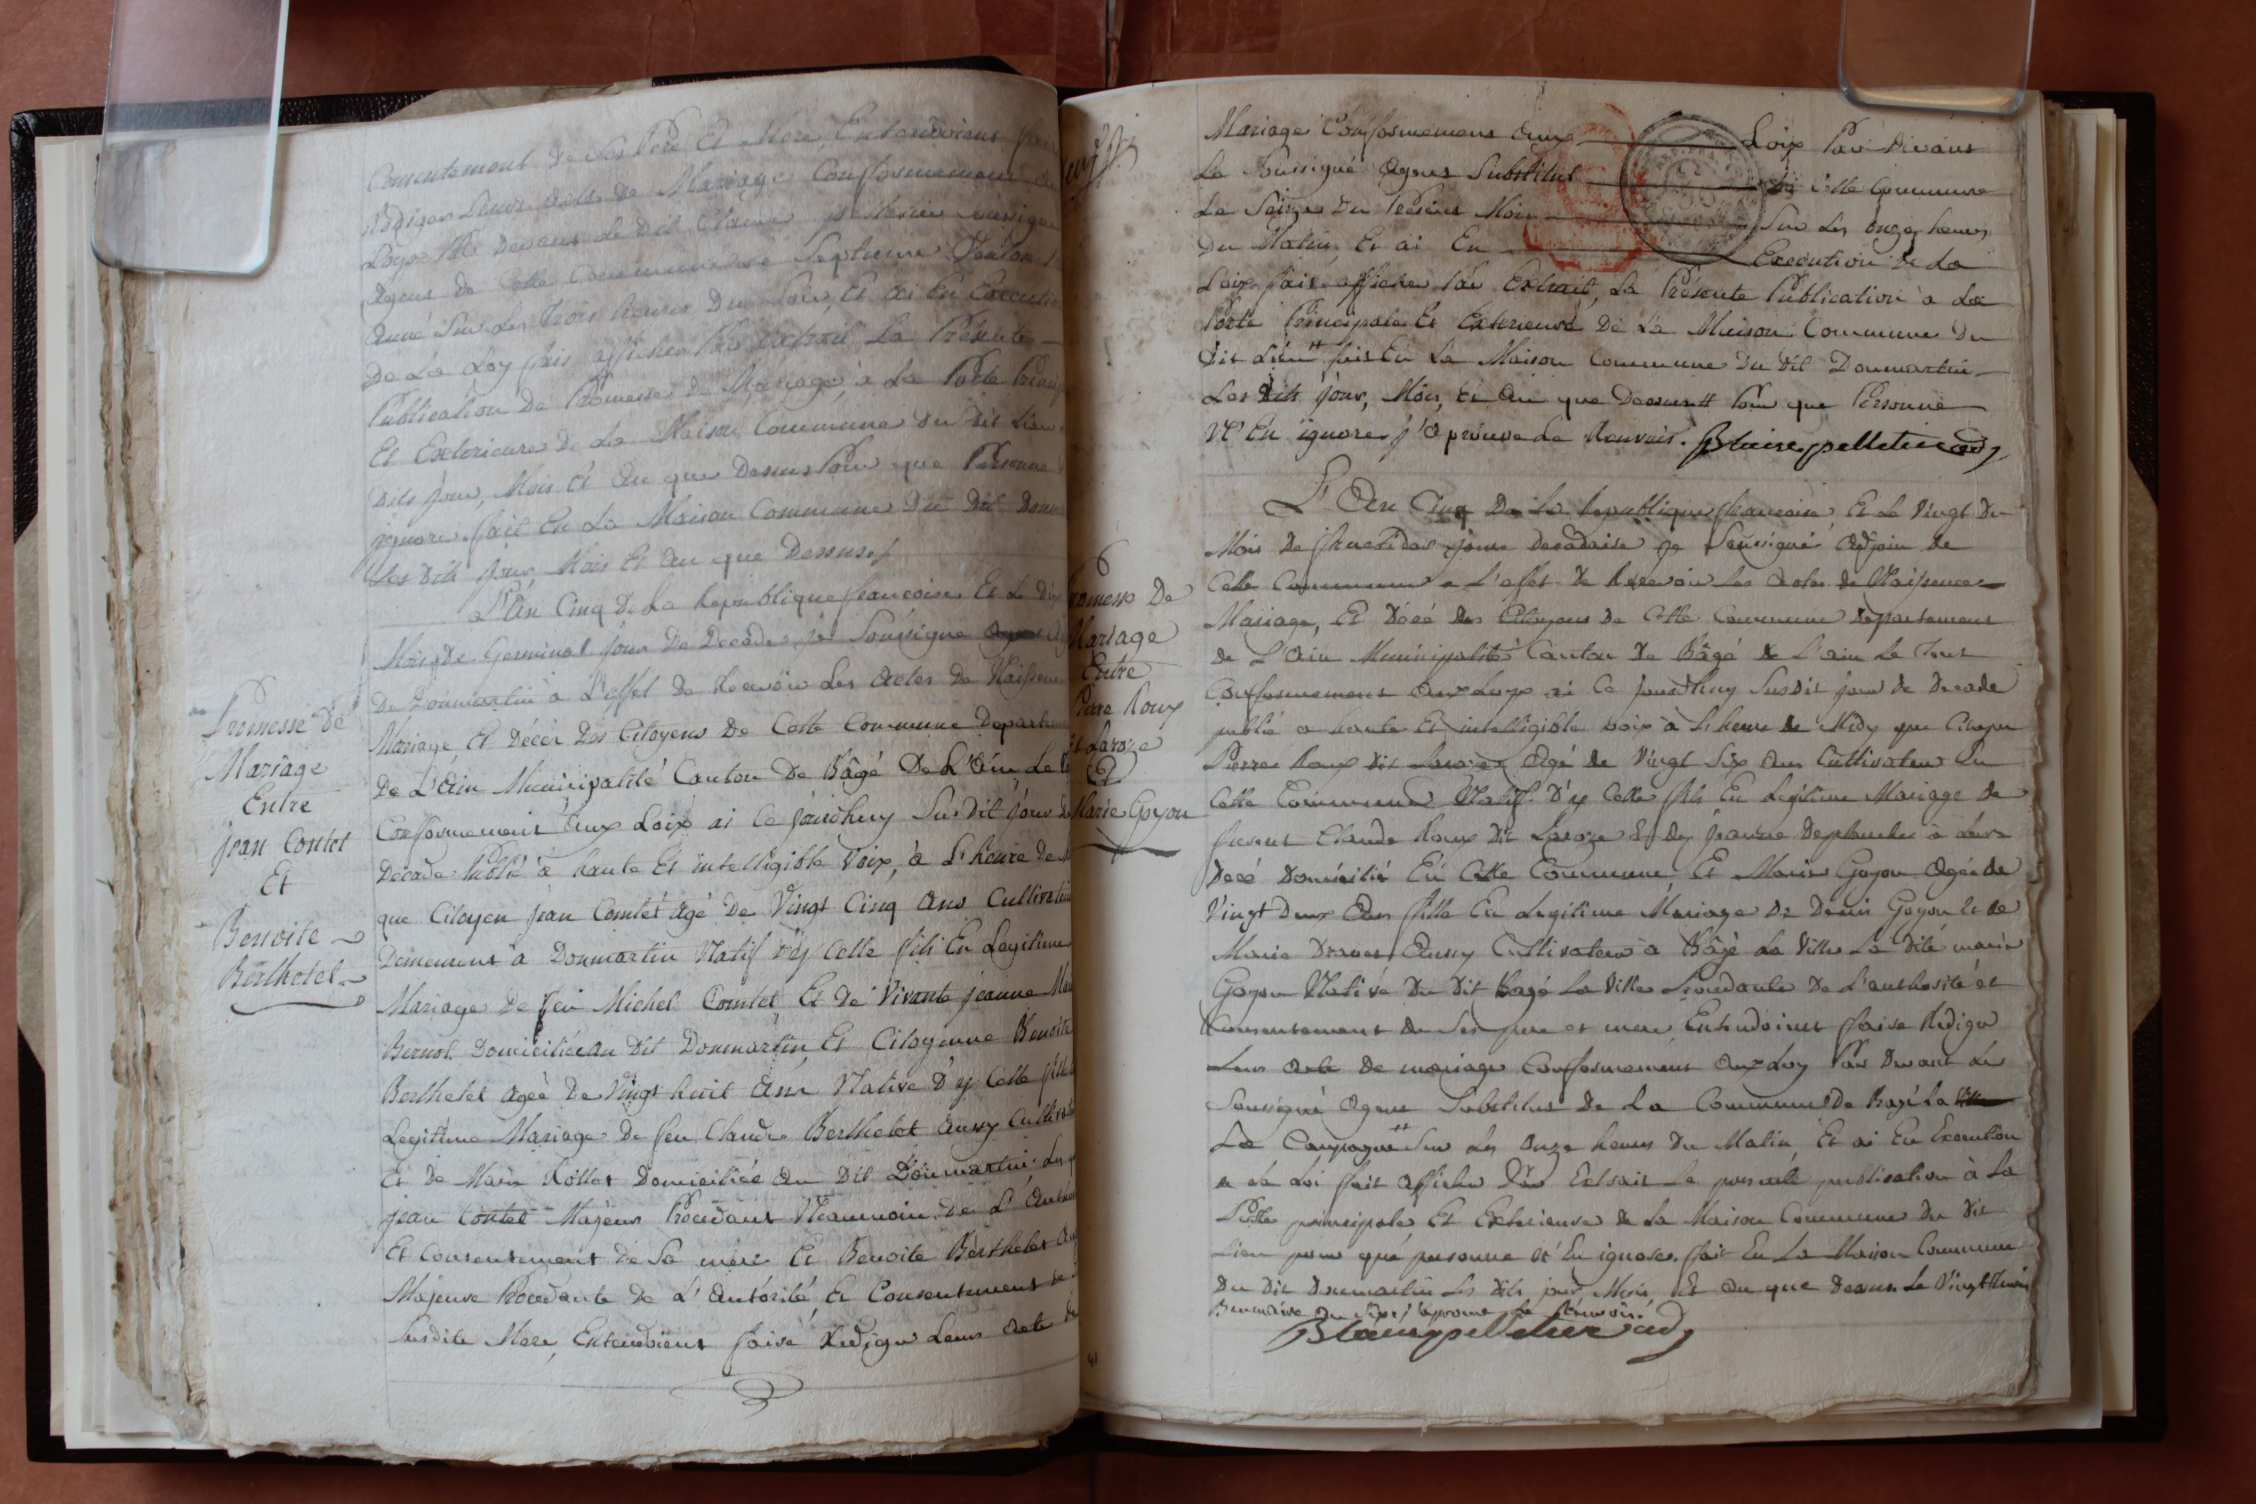 Consentement de Ses Père Et Mere, Entendoient faire
Rediger Leurs acte de Mariage Conformement aux
Loys Par Devant le dit Claude
Agent de Cette Commune Le Septieme
Sur Les Trois heures Du Soir, Et ai En Execution
De La Loy fais afficher Par Extrait La Présente
Publication De Promesse de Mariage, a La Porte Princip
Et Exterieure de La Maison Commune du dit Lieu
Dits jour, Mois Et An que Dessus Pour que Personne
ignore. fait En La Maison Commune Du Dit Donm
Les Dits jour Mois Et An que Dessus
Promesse De
Mariage
Entre
jean Contet
Et
Benoite
Berthelet
L'An Cinq De La Republique francoise Et Le Dix
Mois De Germinal jour De Decade je Soussigné
De Donmartin a L'effet De Recevoir Les Actes De Naissence
Mariage Et Décèr Des Citoyens De Cette Commune Departem
De L'Ain Municipalité Canton De Bâgé De L'Ain Le
Conformement Aux Loix ai Ce jourdhuy Susdit jour de
Decade Publié a haute Et intelligible Voix, à L'heure De
que Citoyen jean Comtet agé De Vingt Cinq Ans Cultivateur
Demeurent à Donmartin Natif D'y Celle fils En Legitime
Mariage De feu Michel Comtet Et De Vivante jeanne Mar
Bernol Domiciliée au Dit Donmartin Et Citoyenne Benoite
Berthelet agéé De Vingt huit Ans Native D'y Celle fille
Legitime Mariage De feu Claude Berthelet Aussy Cultivat
Et De Marie Rollet Domiciliée Au Dit Donmartin Le
jean Contet Majeur Procedant Neanmoin De L'Autho
Et Consentement De Sa mere Et Benoite Berthelet Aus
Majeure Procedante De L'Autôrité Et Consentement de
Susdite Mere, Entendoient faire Rediger Leurs Acte de
Mariage Conformement Aux Loix Par Devant
Le Soussigné Agent Substitut De Cette Commune
Le Seize Du Présent Mois Sur Les onze heures
Du Matin Et ai En Execution De La
Loix fait afficher Par Extrait, La Présente Publication a La
Porte Principale Et Exterieure De La Maison Commune Du
Dit Lieu fait En La Maison Commune Du Dit Donmartin
Les Dits jour, Mois, Et An que Dessus Pour que Personne
N'En ignore j'Aprouve Le Renvois. Blaise pelletier adj
6
Promesse De
Mariage
Entre
Pierre Roux
dit Laroze
Et
Marie Goyon
L'An Cinq De La Republique francoise Et Le Vingt Du
Mois De fructidor jour Decadaire je Soussigné Adjoin de
Cette Commune a L'effet De Recevoir Les Actes De Naissences
Mariage, Et Décé Des Citoyens De Cette Commune Departement
de L'Ain Municipalité Canton De Bâgé De L'ain Le Tout
Conformement Aux Loyx ai Ce jourdhuy Susdit jour de Decade
publié a haute Et intelligible Voix à L'heure de Midy que Citoyen
Pierre Roux Dit Laroze Agé de Vingt Six Ans Cultivateur En
Cette Commune Natif D'y Celle fils En Legitime Mariage De
Claude Roux Dit Laroze Et De jeanne Deplanche a Leur
Décé Domicilié En Cette Commune, Et Marie Goyon Agée de
Vingt Deux Ans fille En Legitime Mariage De Denis Goyon Et De
Marie Aussy Cultivateur a Bâgé La Ville La Dite marie
Goyon Native Du Dit Bagé La Ville Procedante De L'authorité et
Consentement De Ses pere et mere Entendoient faire Rediger
Leur Acte De mariage Conformement Aux Loy Par Devant Le
Soussigné Agent Substitut De La Commune De Bagé La
La Campagne Sur Les Onze heures Du Matin Et ai En Execution
De La Loi fait afficher Par Extrait La presente publication à La
Porte principale Et Exterieure De La Maison Commune Du Dit
Lieu pour que personne N'En ignore. fait En La Maison Commune
Du Dit Donmartin Les Dits jour, Mois, Et An que Dessus Le Vingt
Brumaire An Sixe j'Approuve Le Renvoi
Blaise pelletier adj